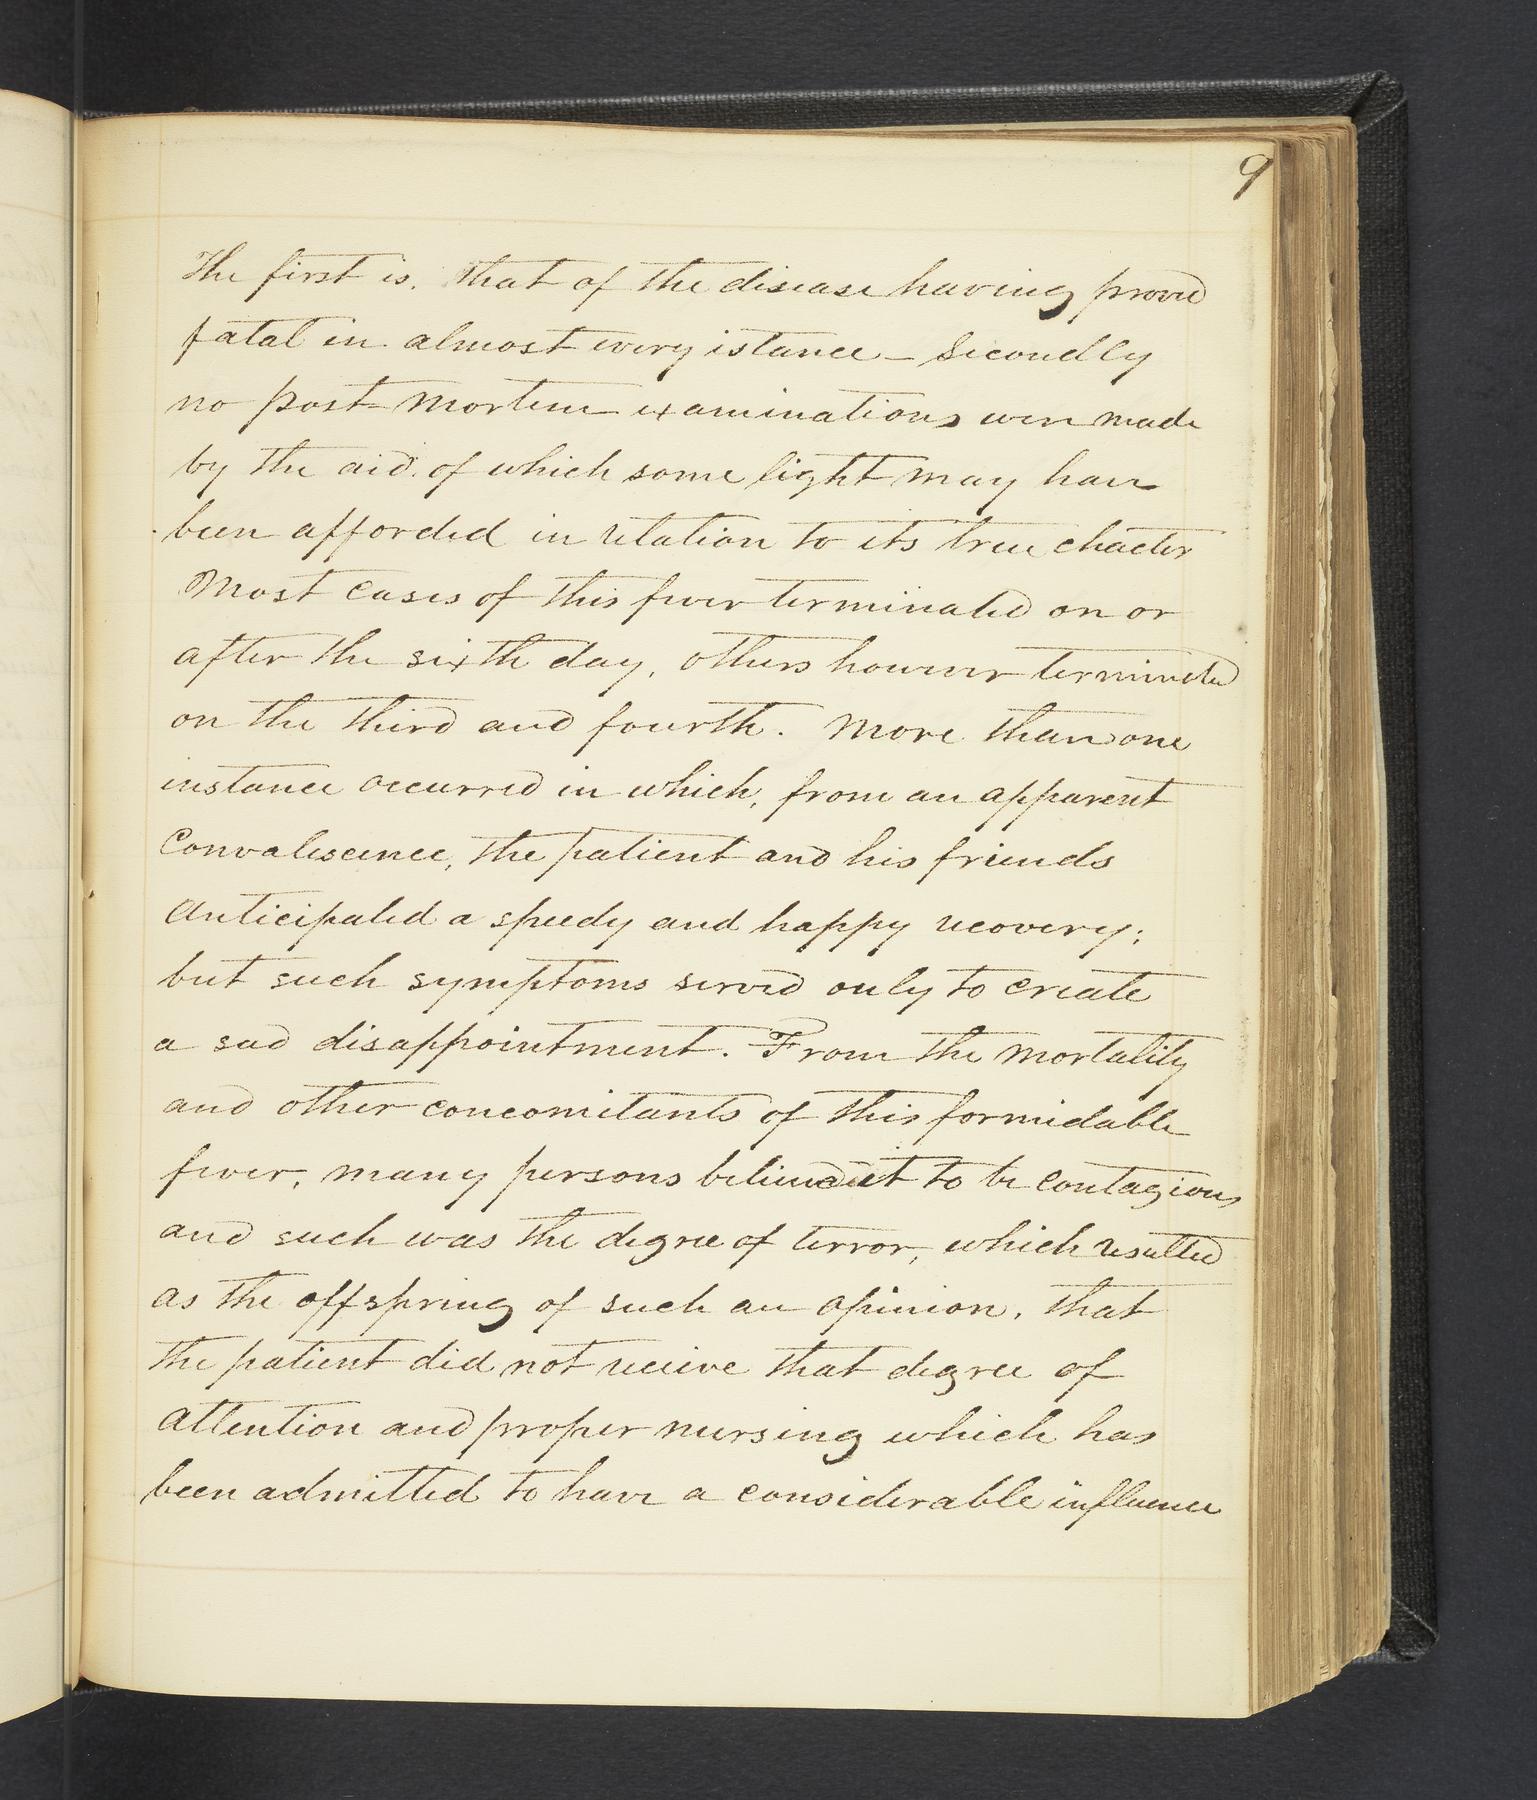 9
The first is, that of the disease having proved
fatal in almost every istance - Secondly
no post-mortem examinations were made
by the aid of which some light may have
been afforded in relation to its true chacter
Most cases of this fever terminated on or
after the sixth day, others however terminated
on the third and fourth. More than one
instance occurred in which, from an apparent
Convalescence, the patient and his friends
Anticipated a speedy and happy recovery;
but such symptoms served only to create
a sad disappointment. From the mortality
and other concomitants of this formidable
fever, many persons believed it to be contagious
and such was the degree of terror, which resulted
as the offspring of such an opinion, that
the patient did not receive that degree of
attention and proper nursing which has
been admitted to have a considerable influence